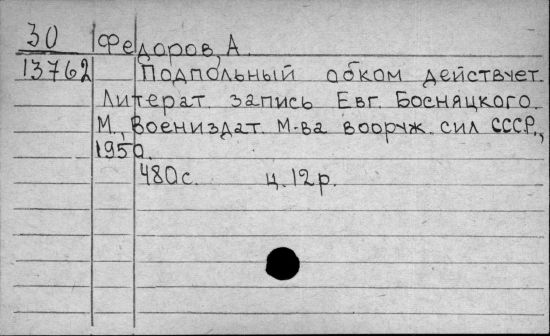 30 Федоров, А.
13762 Подпольный обком действует.
Литерат. запись Евг. Босняцкого.
М., Воениздат. М-ва вооруж. сил СССР.,
1950.
480с. ц. 12р.